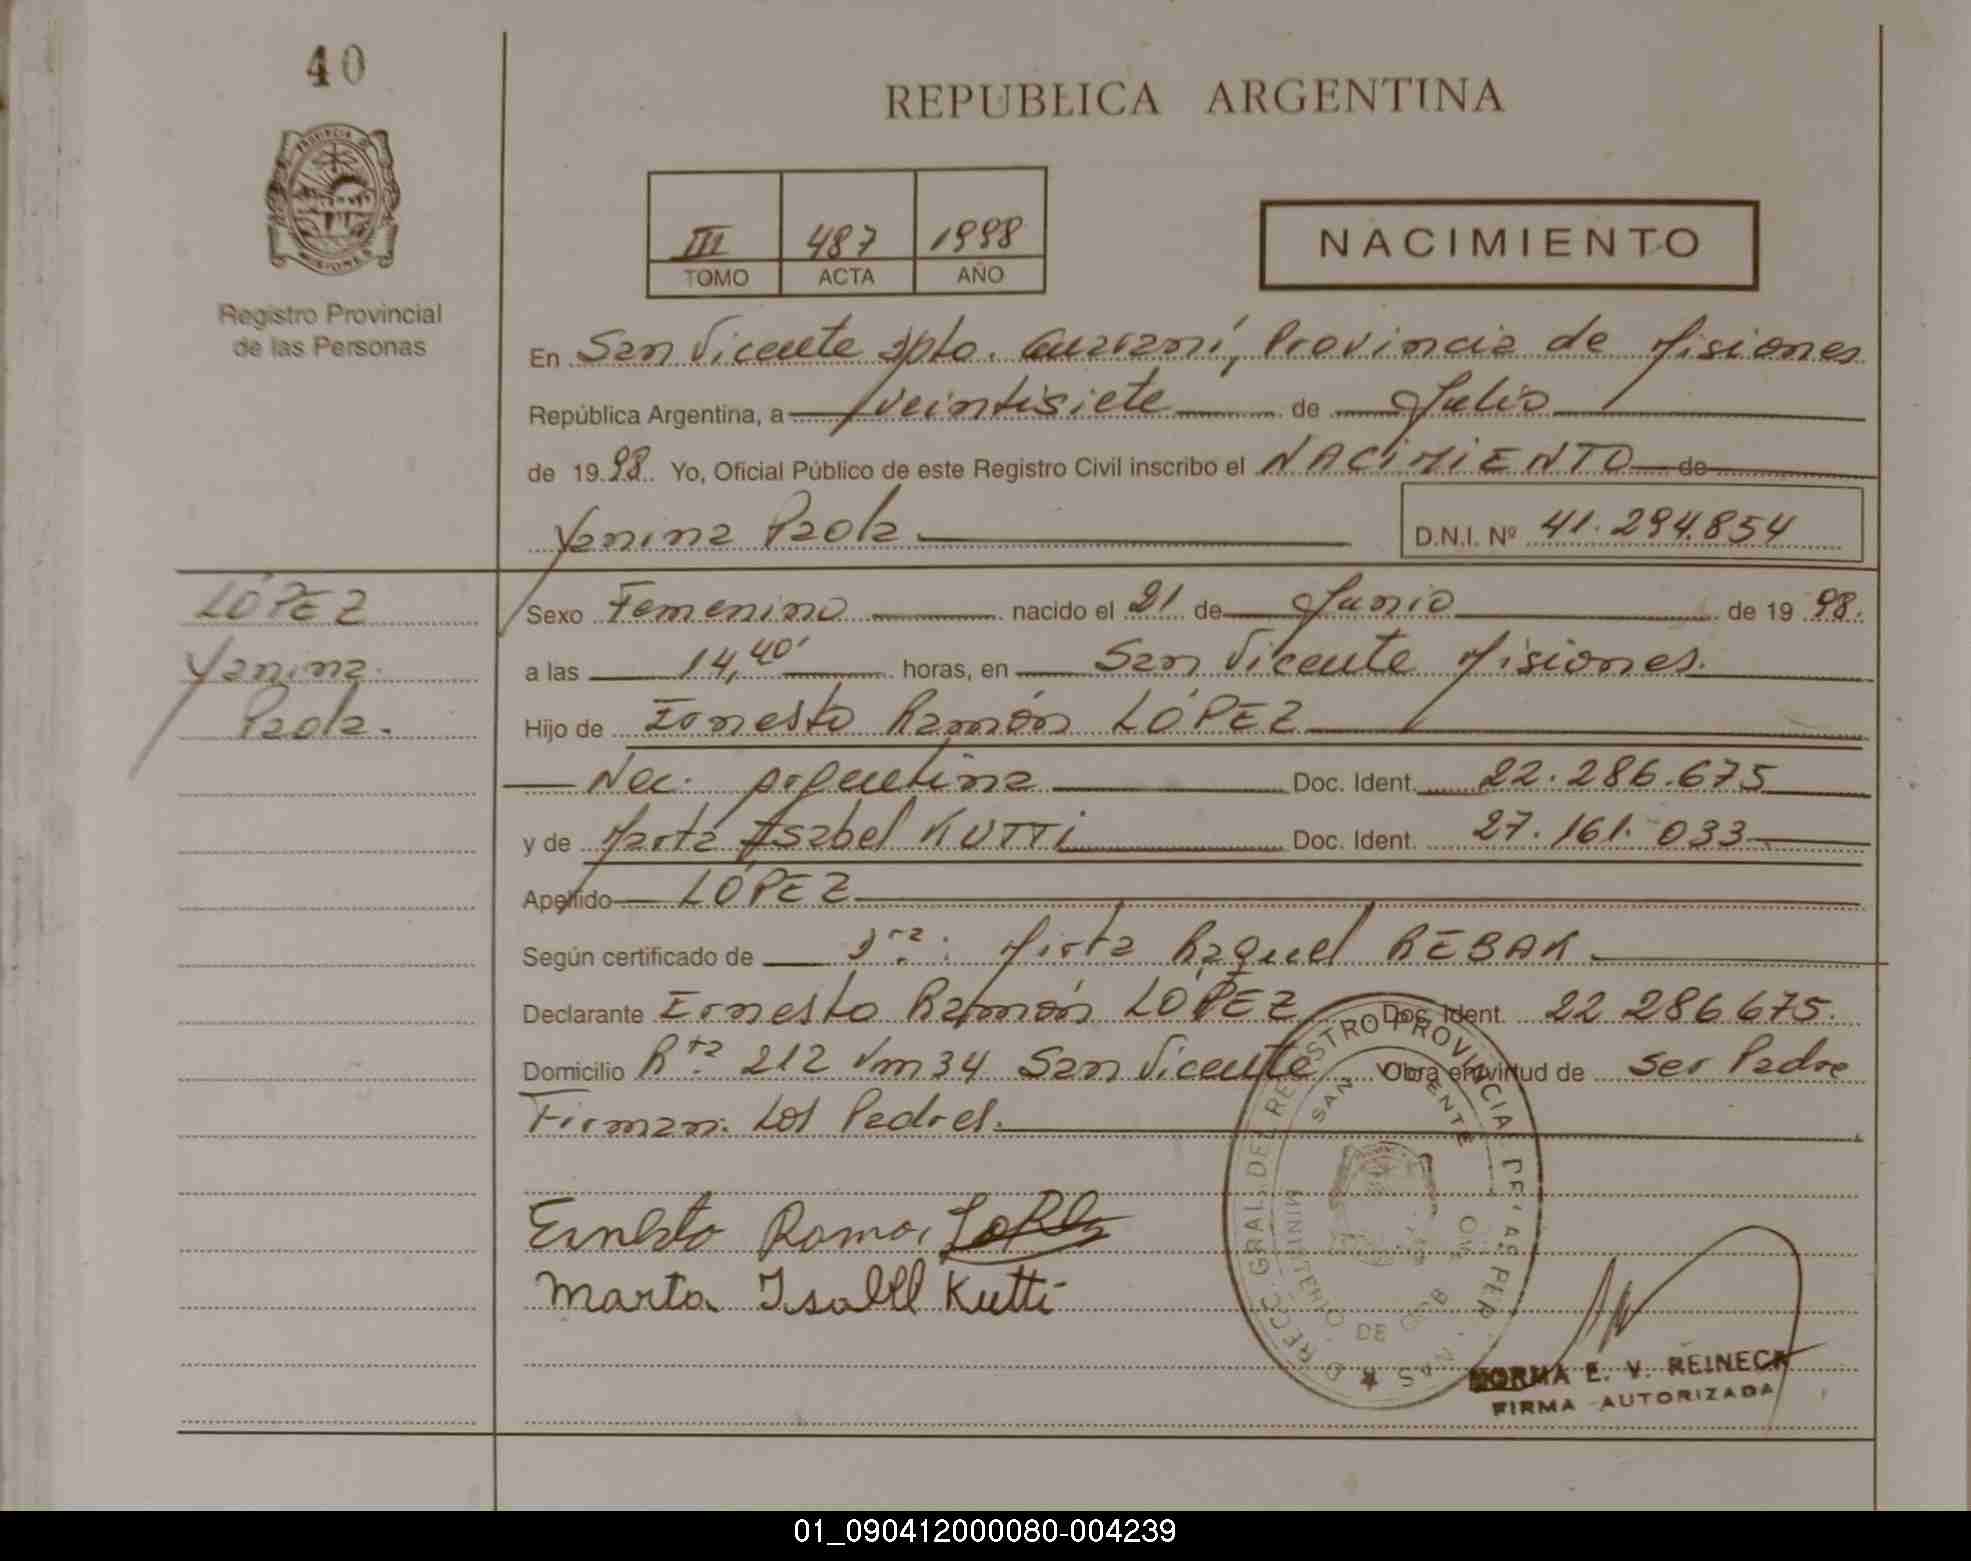 40
REPUBLICA ARGENTINA
PROVINCIA
MISIONES
Registro Provincial
de las Personas
III 487 1998
TOMO ACTA AÑO
NACIMIENTO
En San Vicente Dpto. Guaraní, Provincia de Misiones
República Argentina, a veintisiete de Julio
de 1998. Yo, Oficial Público de este Registro Civil inscribo el NACIMIENTO de
Yanina Paola D.N.I. Nº 41.294.854
LÓPEZ
Yanina
Paola.
Sexo Femenino nacido el 21 de Junio de 1998.
a las 14,40' horas, en San Vicente Misiones.
Hijo de Ernesto Ramón LÓPEZ
Nac. argentina Doc. Ident. 22.286.675
y de Marta Isabel KUTTI Doc. Ident. 27.161.033
Apellido LÓPEZ
Según certificado de Mirta Raquel REBAK
Declarante Ernesto Ramón LÓPEZ Doc. Ident. 22 286 675.
Domicilio Rta. 212 Km 34 San Vicente Obra en virtud de ser Padre
Firman: Los Padres.
Ernesto Ramon Lopez
Marta Isabel Kutti
DIRECC. GRAL. DEL REGISTRO PROVINCIAL DE LAS PERSONAS
SAN VICENTE
MINISTERIO DE GOB
NORMA E. V. REINECK
FIRMA AUTORIZADA
01_090412000080-004239